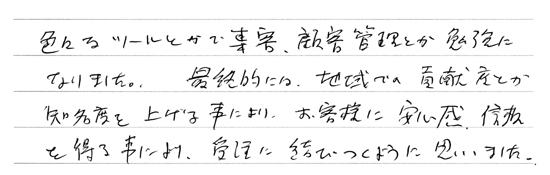 色々なツールとかで集客、顧客管理とか勉強に
なりました。 最終的には、地域での貢献度とか
知名度を上げる事により、お客様に安心感、信頼
を得る事により、受注に結びつくように思いました。